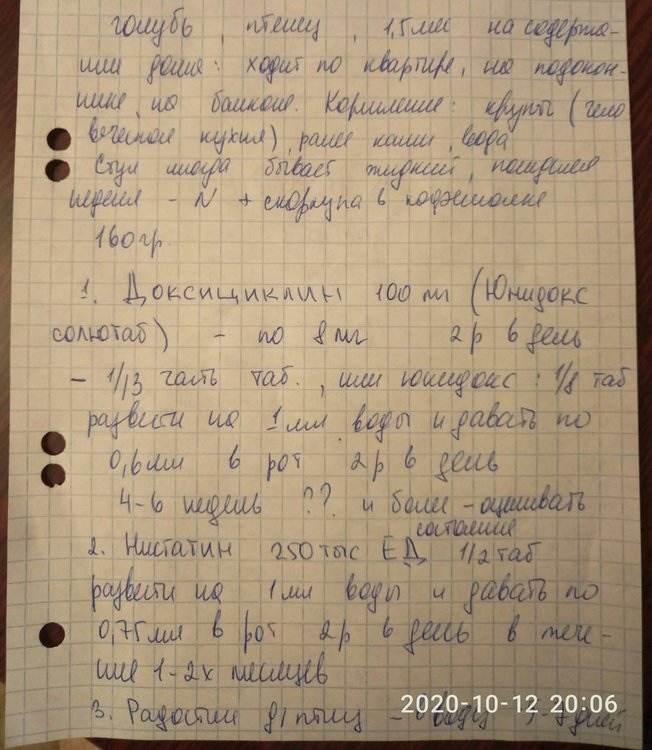 голубь, птенец, 1,5 мес на содержа-
нии дома: ходит по квартире, на подокон-
нике, на балконе. Кормление: крупы (чело
веческая кухня), ранее каши, вода
Стул иногда бывает жидкий, последняя
неделя - N + скорлупа в кофемолке
160гр.
1. Доксициклин 100 мг (Юнидокс
солютаб) - по 8 мг 2 р в день
- 1/13 часть таб., или юнидокс: 1/8 таб
развести на 1 мл воды и давать по
0,6 мл в рот 2 р в день
4-6 недель ?? и более - оценивать
состояние
2. Нистатин 250 тыс ЕД 1/2 таб
развести на 1 мл воды и давать по
0,75 мл в рот 2 р в день в тече-
ние 1-2х месяцев
3. Радостин д/птиц - воду дней
2020-10-12 20:06